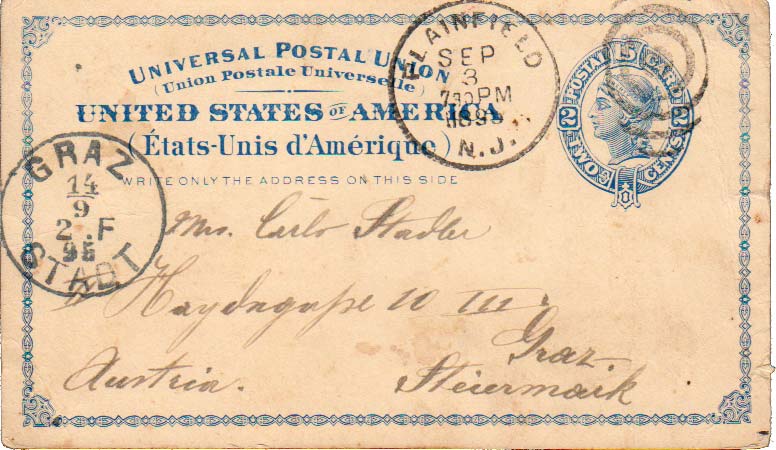 UNIVERSAL POSTAL UNION
(Union Postale Universelle)
UNITED STATES OF AMERICA
(États-Unis d'Amérique)
WRITE ONLY THE ADDRESS ON THIS SIDE
PLAINFIELD
SEP
3
PM
N.J.
POSTAL CARD
2 2
TWO CENTS
GRAZ
14
9
2.F
95
STADT
Mrs. Carlo Stadler
Haydngaße 10 III.
Graz
Austria. Steiermark